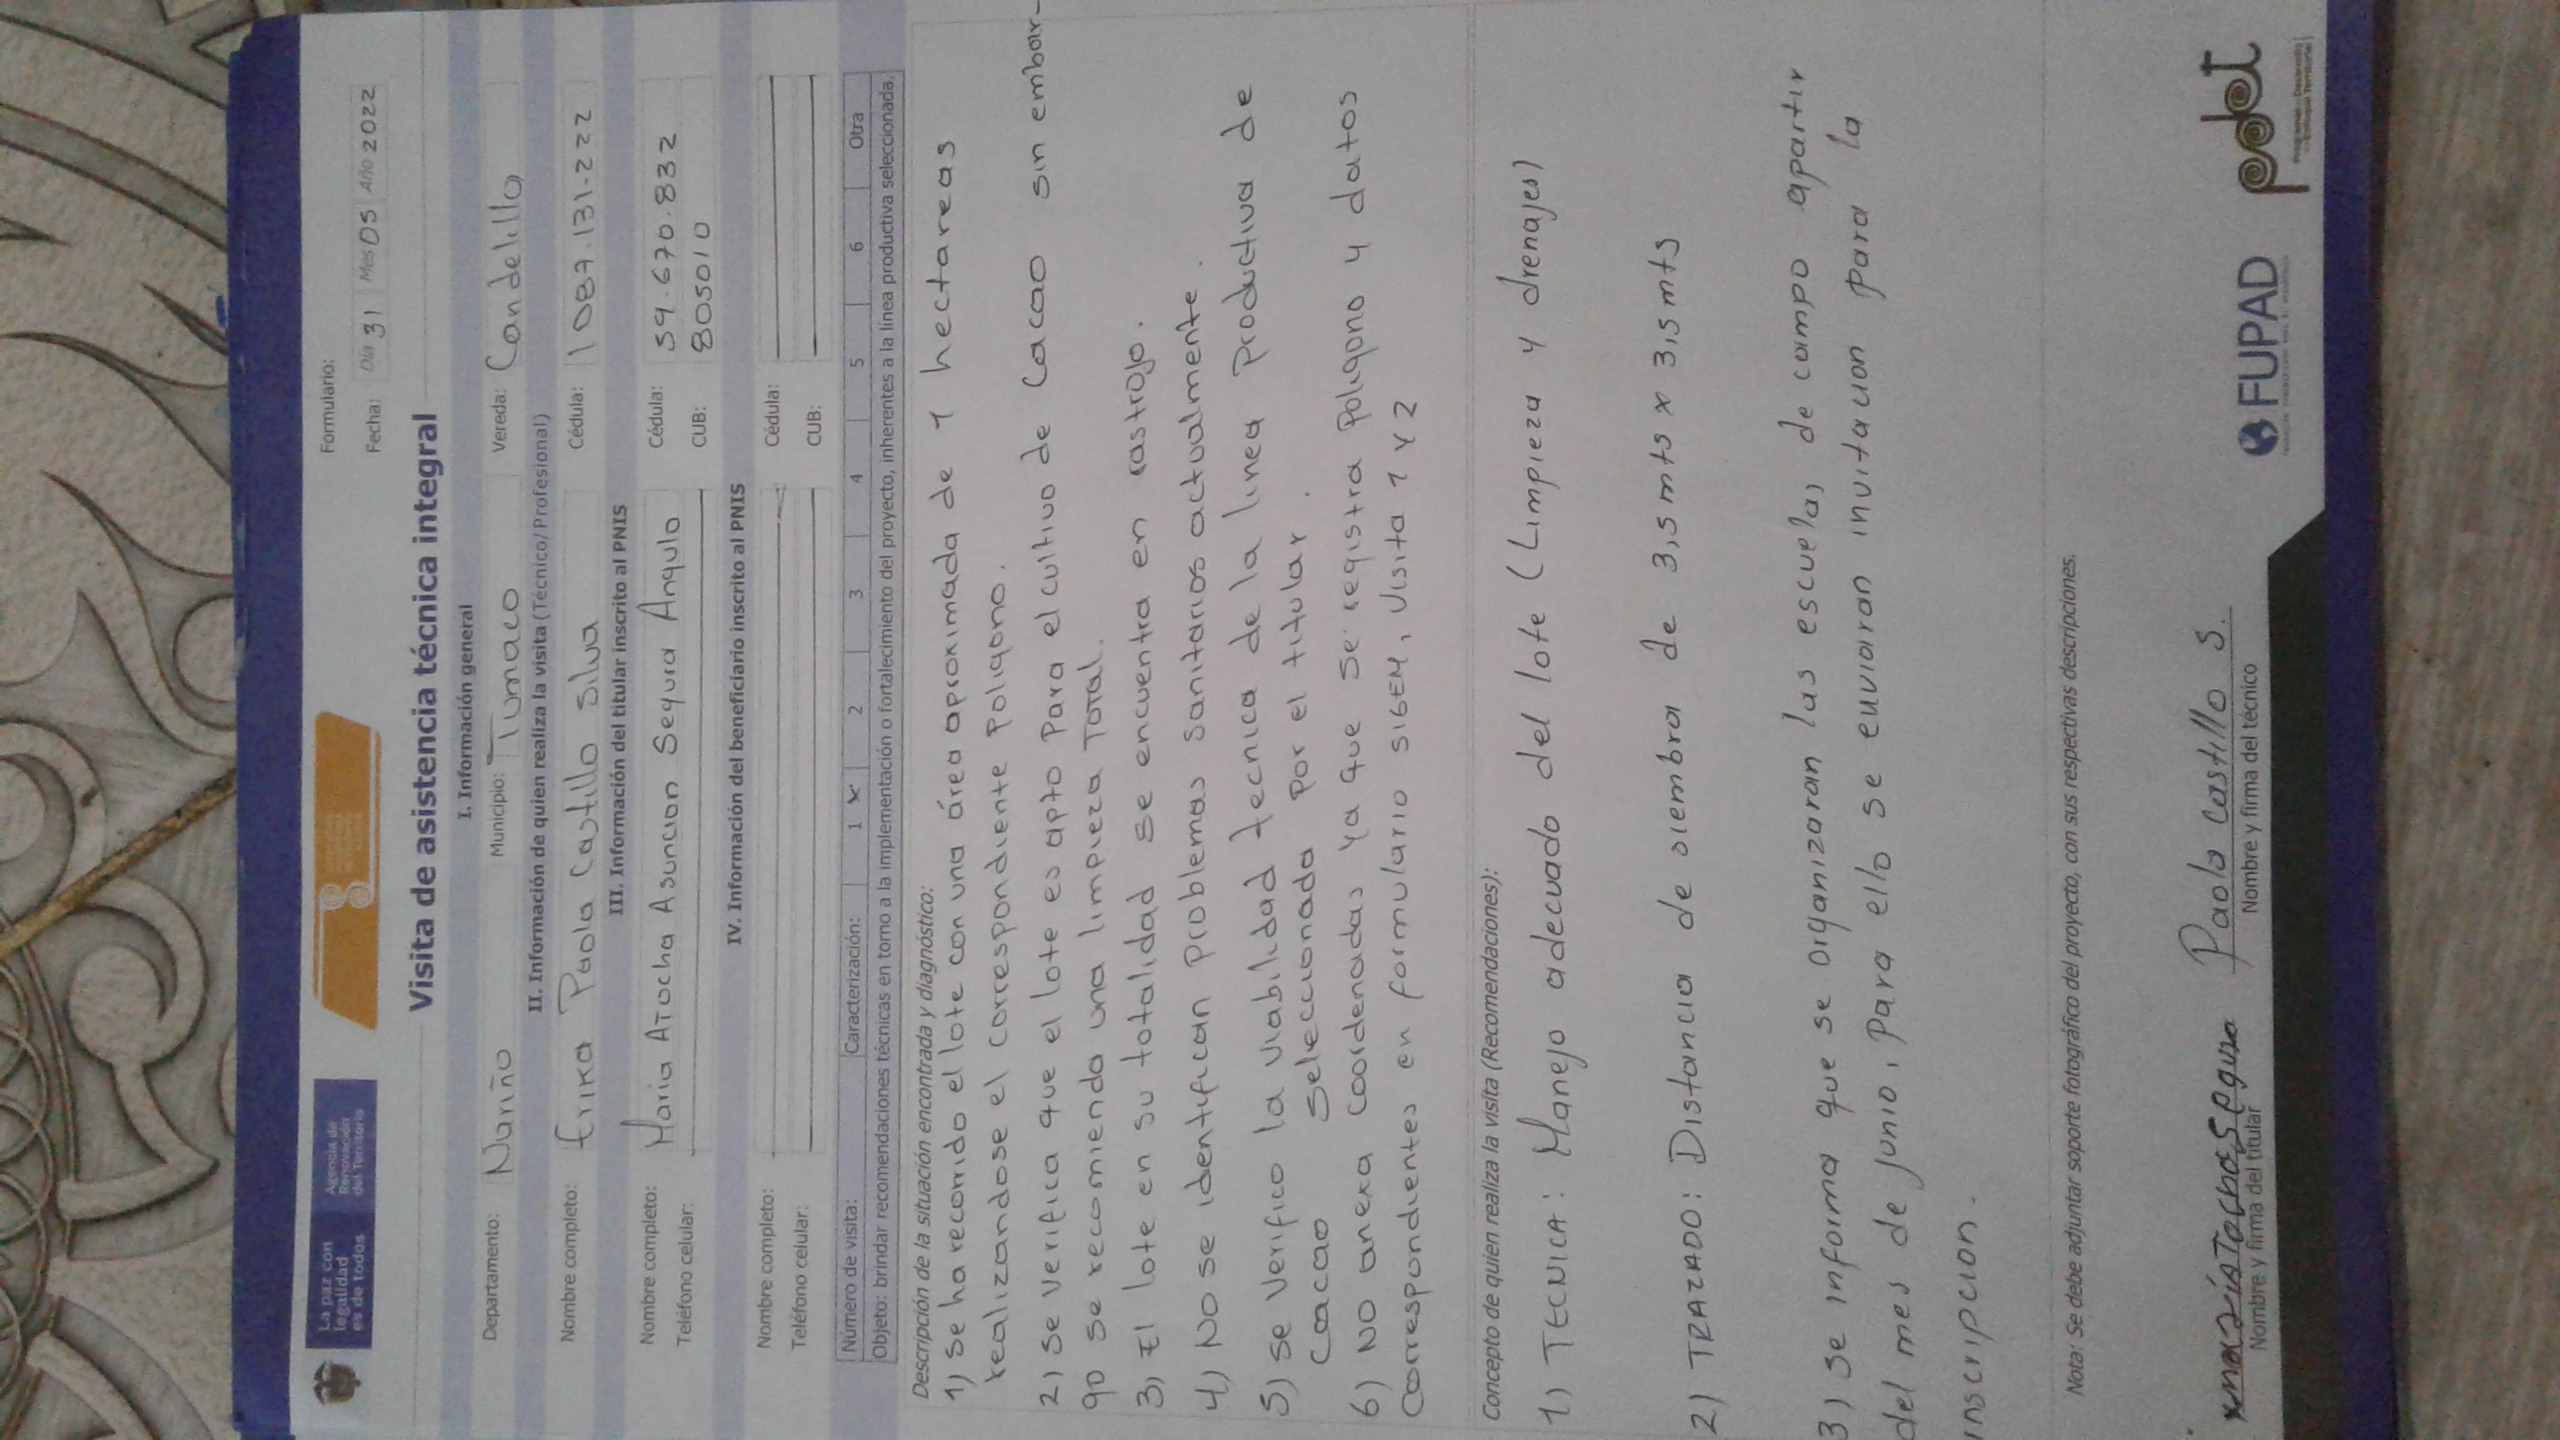 La paz con
legalidad
es de todos
Agencia de
Renovación
del Territorio
Formulario:
Fecha: Día 31 Mes 05 Año 2022
Visita de asistencia técnica integral
I. Información general
Departamento: Nariño Municipio: Tumaco Vereda: Candelilla
II. Información de quien realiza la visita (Técnico/ Profesional)
Nombre completo: Erika Paola Castillo Silva Cédula: 1087.131-222
III. Información del titular inscrito al PNIS
Nombre completo: Maria Atocha Asuncion Segura Angulo Cédula: 59.670.832
Teléfono celular: CUB: 805010
IV. Información del beneficiario inscrito al PNIS
Nombre completo: Cédula:
Teléfono celular: CUB:
Número de visita: Caracterización: 1 x 2 3 4 5 6 Otra
Objeto: brindar recomendaciones técnicas en torno a la implementación o fortalecimiento del proyecto, inherentes a la línea productiva seleccionada.
Descripción de la situación encontrada y diagnóstico:
1) Se ha recorrido el lote con una área aproximada de 1 hectareas
realizandose el correspondiente Poligono.
2) Se verifica que el lote es apto para el cultivo de cacao sin embar-
go se recomienda una limpieza Total.
3) El lote en su totalidad se encuentra en rastrojo.
4) No se identifican problemas sanitarios actualmente.
5) se verifico la viabilidad tecnica de la linea productiva de
Cacao seleccionada por el titular.
6) No anexa coordenadas ya que se registra poligono y datos
correspondientes en formulario SIGEM, visita 1 y 2
Concepto de quien realiza la visita (Recomendaciones):
1) TECNICA: Manejo adecuado del lote (Limpieza y drenajes)
2) TRAZADO: Distancia de siembra de 3,5mts x 3,5mts
3) se informa que se organizaran las escuelas de campo apartir
del mes de junio, Para ello se enviaran invitacion para la
inscripcion.
Nota: Se debe adjuntar soporte fotográfico del proyecto, con sus respectivas descripciones.
Paola Castillo S.
Nombre y firma del titular
Nombre y firma del técnico
FUPAD
pdet